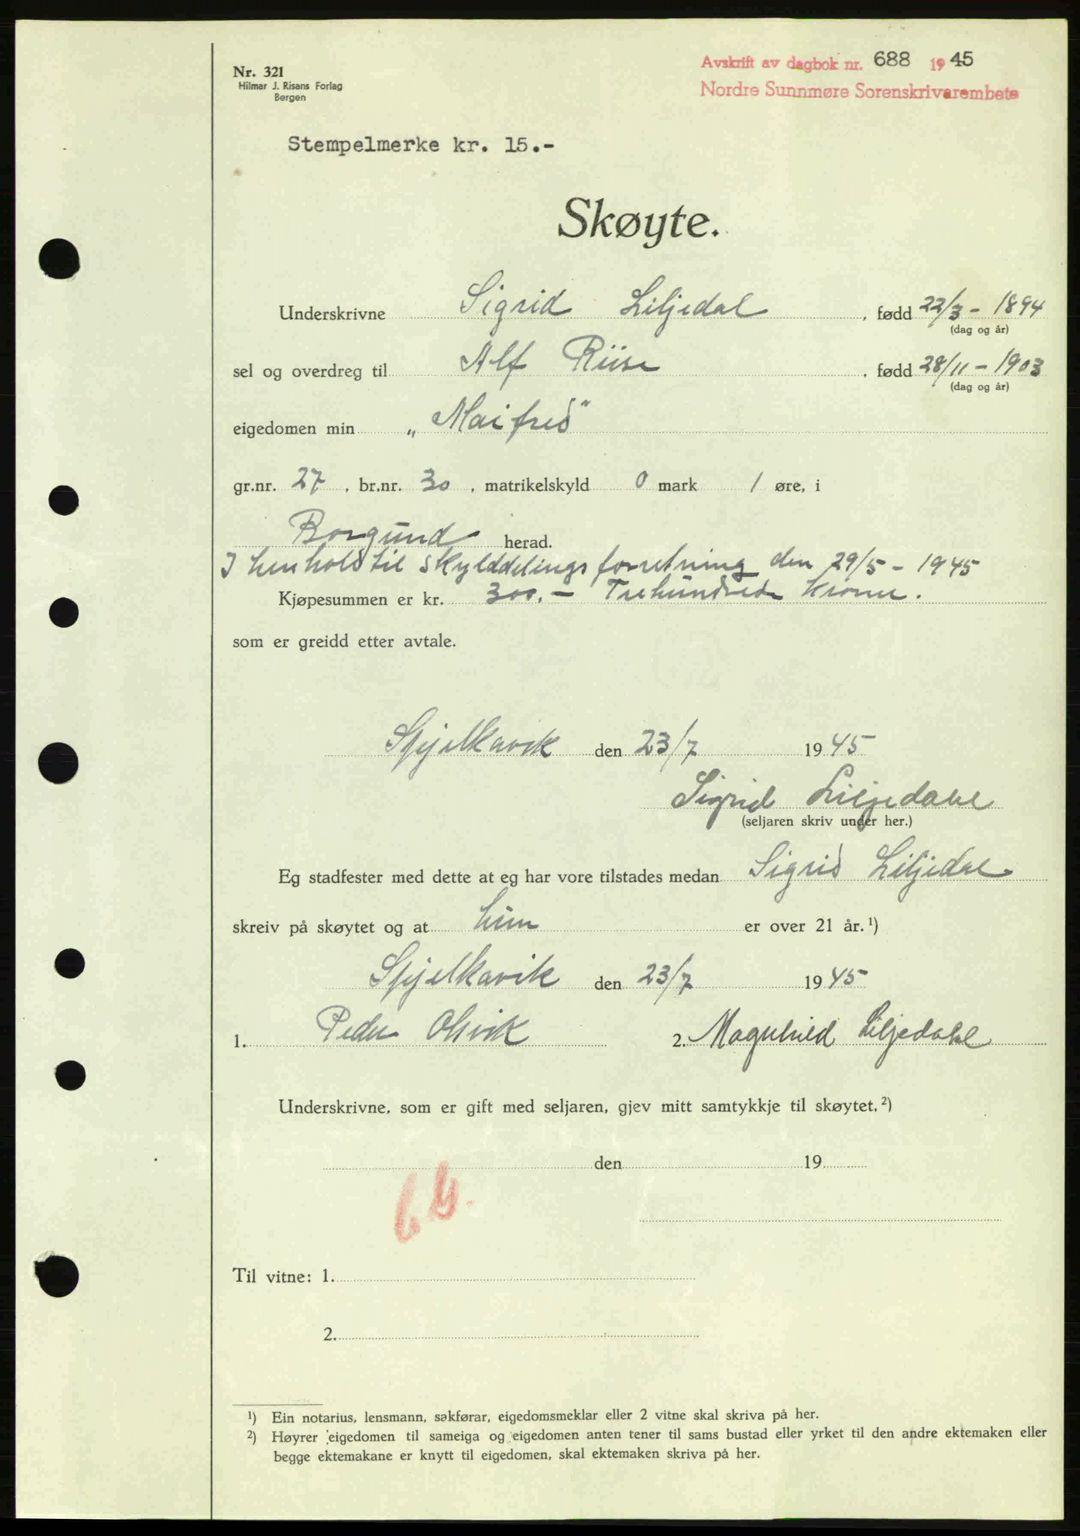 Nr. 321
Hilmar J. Risans Forlag
Bergen
Avskrift av dagbok nr. 688 1945
Nordre Sunnmøre Sorenskrivarembete
Stempelmerke kr. 15.-
Skøyte.
Underskrivne Sigrid Liljedal, født 22/3 - 1894
(dag og år)
sel og overdreg til Alf Riise, født 28/11 - 1903
(dag og år)
eigedomen min „Maifred"
gr.nr. 27, br.nr. 30, matrikelskyld 0 mark 1 øre, i
Borgund herad.
I henhold til skylddelingsforretning den 29/5 - 1945
Kjøpesummen er kr. 300.- Trehundrede kroner.
som er greidd etter avtale.
Spjelkavik den 23/7 1945
Sigrid Liljedahl
(seljaren skriv under her.)
Eg stadfester med dette at eg har vore tilstades medan Sigrid Liljedal
skreiv på skøytet og at hun er over 21 år.¹)
Spjelkavik den 23/7 1945
1. Peder Olsvik 2. Magnhild Liljedahl
Underskrivne, som er gift med seljaren, gjev mitt samtykkje til skøytet.²)
den 19
Til vitne: 1.
2.
¹) Ein notarius, lensmann, sakførar, eigedomsmeklar eller 2 vitne skal skriva på her.
²) Høyrer eigedomen til sameiga og eigedomen anten tener til sams bustad eller yrket til den andre ektemaken eller
begge ektemakane er knytt til eigedomen, skal ektemaken skriva på her.